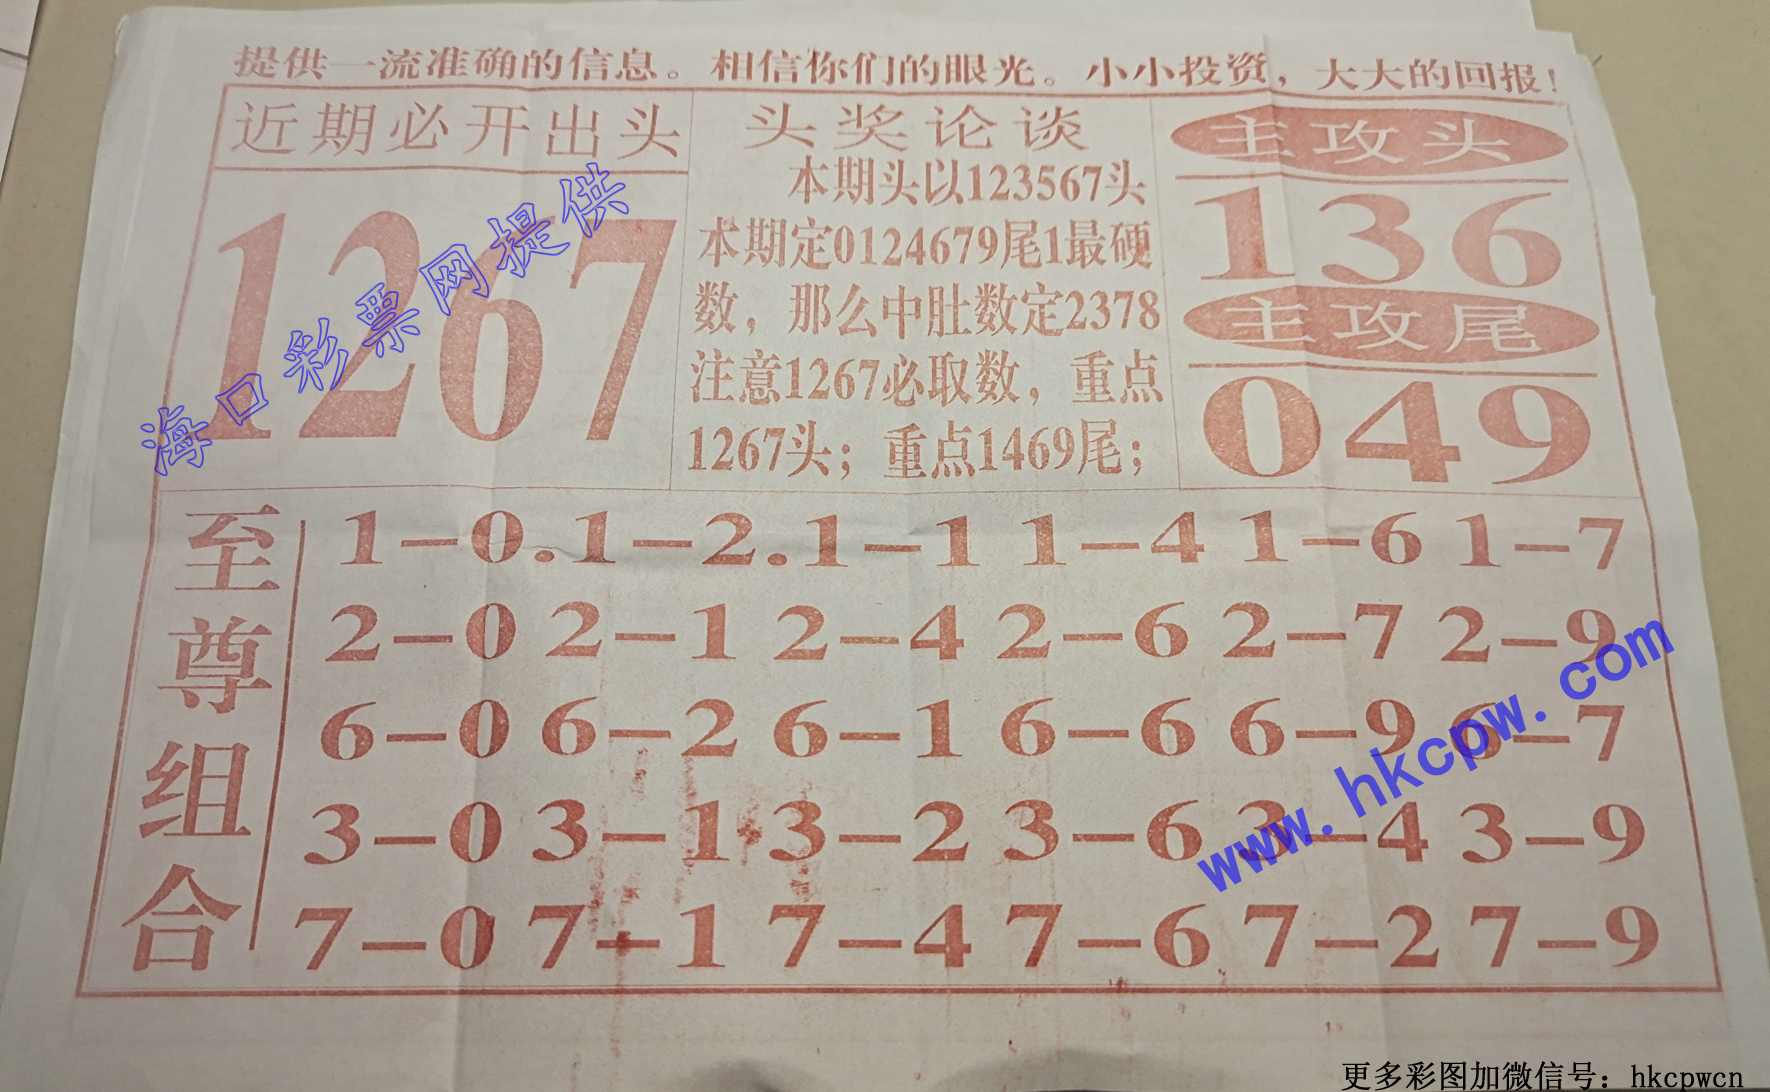 提供一流准确的信息。相信你们的眼光。小小投资，大大的回报！
近期必开出头
1267
头奖论谈
本期头以123567头
本期定0124679尾1最硬
数，那么中肚数定2378
注意1267必取数，重点
1267头；重点1469尾；
主攻头
136
主攻尾
049
至尊组合
1－0.1－2.1－1 1－4 1－6 1－7
2－0 2－1 2－4 2－6 2－7 2－9
6－0 6－2 6－1 6－6 6－9 6－7
3－0 3－1 3－2 3－6 3－4 3－9
7－0 7－1 7－4 7－6 7－2 7－9
海口彩票网提供
www.hkcpw.com
更多彩图加微信号：hkcpwcn